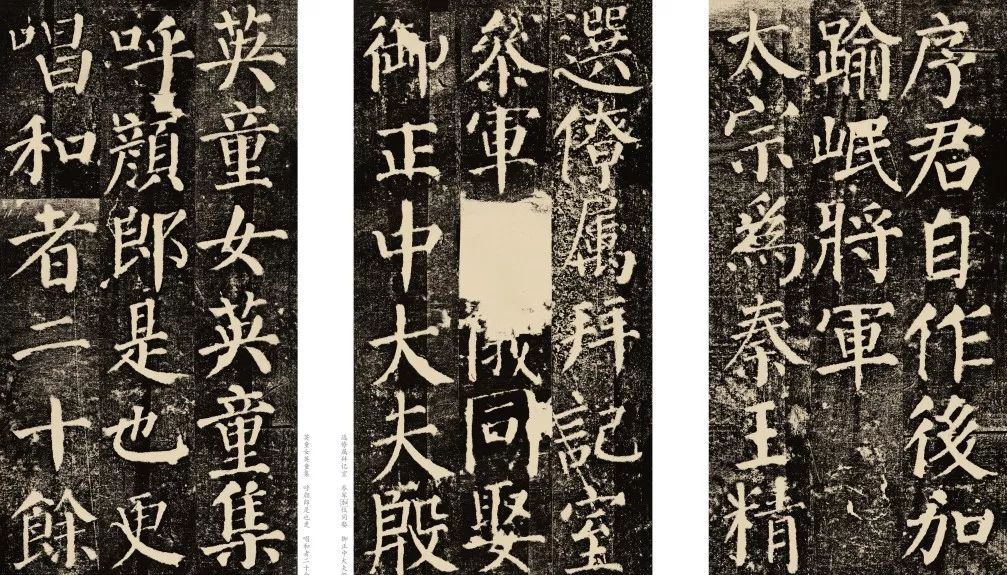 序君自作後加
踰岷將軍
太宗爲秦王精
選僚属拜記室
參軍儀同娶
御正中大夫殷
选僚属拜记室 参军加仪同娶 御正中大夫
英童女英童集 呼颜郎是也更 唱和者二十
英童女英童集
呼顏郎是也更
唱和者二十餘